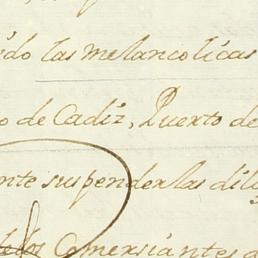 ndo las melancolicas
o de Cadiz, Puerto de
nte suspender las dili
todos Comersiantes